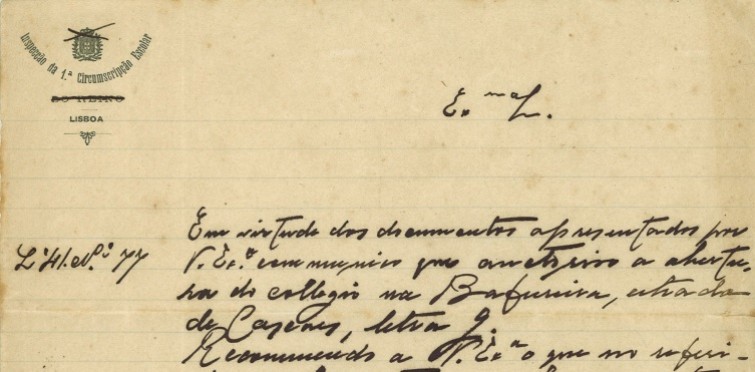 Inspecção da 1.ª Circumscripção Escolar
DO REINO
LISBOA
E.ma S.
L.º 41. N.º 77
Em virtude dos documentos apresentados por
V. Ex.ª communico que auctoriso a abertu-
ra do collegio na Bafureira, estrada
de Cascaes, letra J.
Recommendo a V. Ex.ª o que no referi-